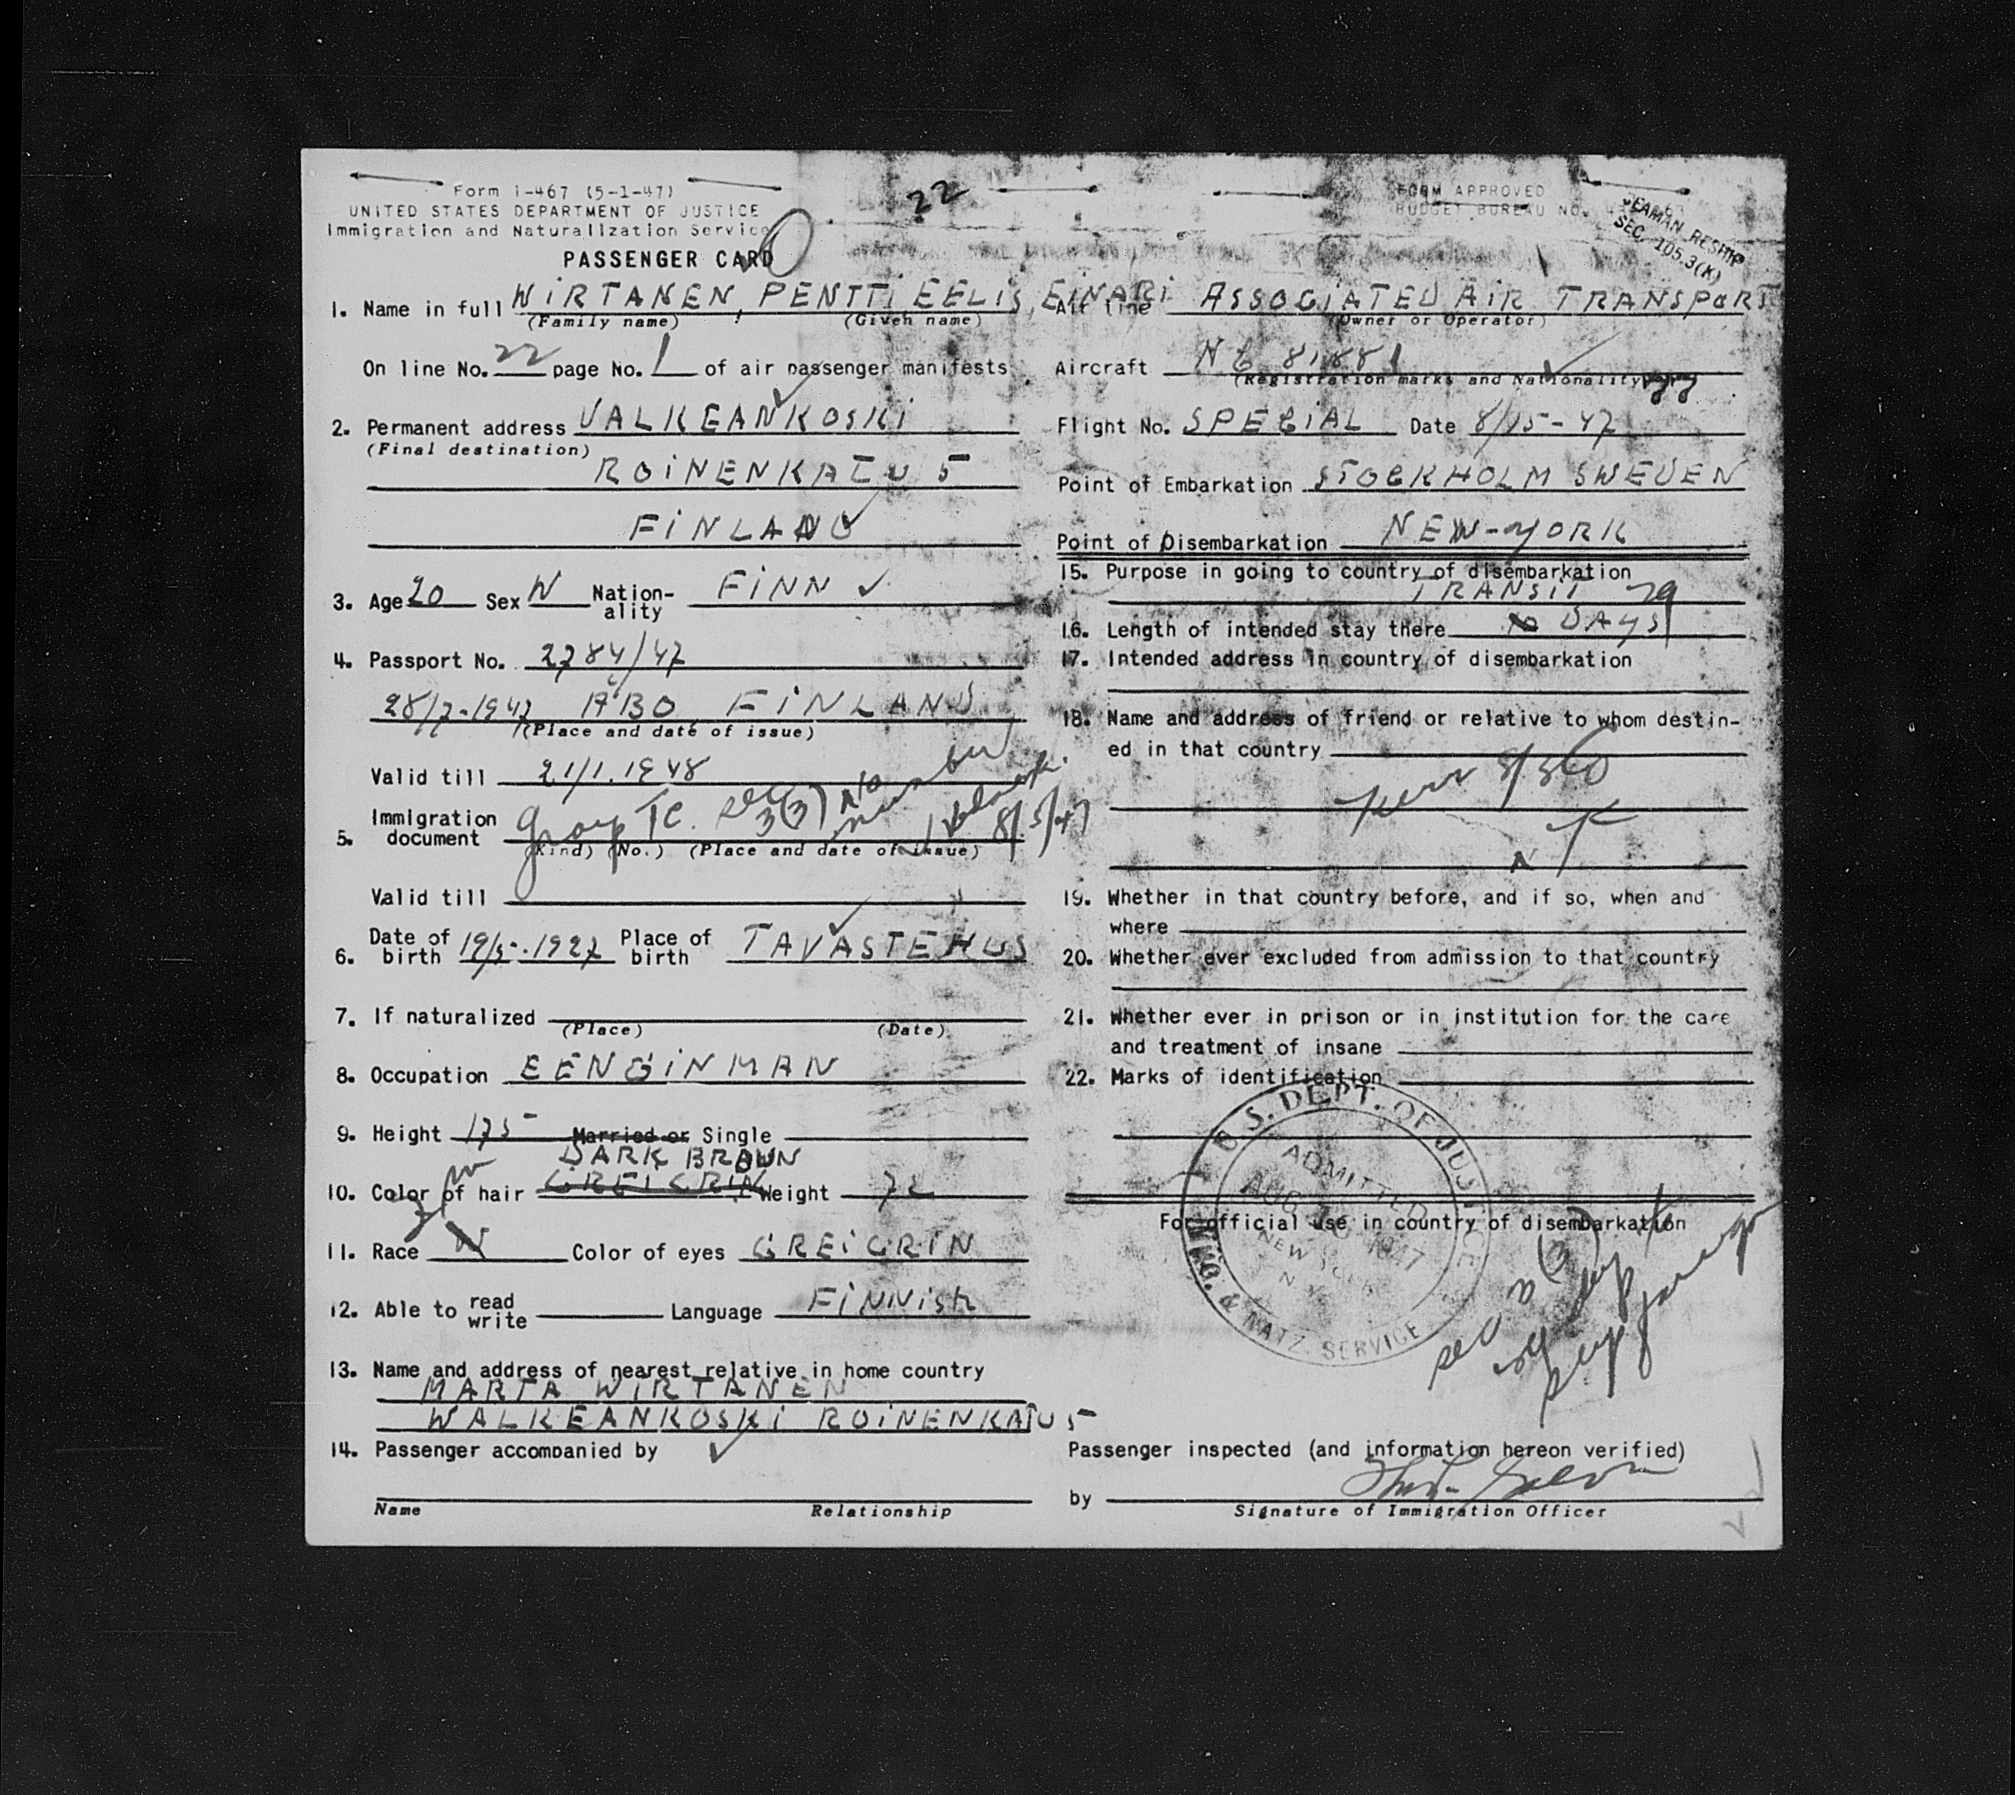 22
Form I-467 (5-1-47)
UNITED STATES DEPARTMENT OF JUSTICE
Immigration and Naturalization Service
PASSENGER CARD
FORM APPROVED
BUDGET BUREAU NO.
SEAMAN RESHIP
SEC. 105.3(K)
1. Name in full WIRTANEN, PENTTI EELIS, EINARI
(Family name) (Given name)
On line No. 22 page No. 1 of air passenger manifests
2. Permanent address VALKEANKOSKI
(Final destination)
ROINENKATU 5
FINLAND
3. Age 20 Sex Nation-ality FINN
4. Passport No. 2784/47
28/7-1947 ÅBO FINLAND
(Place and date of issue)
Valid till 21/1.1948
5. Immigration document Group TC. sec 3(3) No number
8/5/47
(Kind) (No.) (Place and date of issue)
Valid till
6. Date of birth 19/5-1927 Place of birth TAVASTEHUS
7. If naturalized
(Place) (Date)
8. Occupation EENGINMAN
9. Height 175 Married or Single
DARK BRAUN
10. Color of hair GREIGRIN Weight 72
11. Race W Color of eyes GREIGRIN
12. Able to read write Language FINNISH
13. Name and address of nearest relative in home country
MARTA WIRTANEN
WALKEANKOSKI ROINENKATU 5
14. Passenger accompanied by
Name Relationship
Air line ASSOCIATED AIR TRANSPORT
(Owner or Operator)
Aircraft NC 81881
(Registration marks and Nationality)
Flight No. SPECIAL Date 8/15-47
Point of Embarkation STOCKHOLM SWEDEN
Point of Disembarkation NEW-YORK
15. Purpose in going to country of disembarkation
TRANSIT
16. Length of intended stay there 29 DAYS
17. Intended address in country of disembarkation
18. Name and address of friend or relative to whom destin-
ed in that country
19. Whether in that country before, and if so, when and
where
20. Whether ever excluded from admission to that country
21. Whether ever in prison or in institution for the care
and treatment of insane
22. Marks of identification
For official use in country of disembarkation
U.S. DEPT. OF JUSTICE
ADMITTED
AUG 1947
NEW YORK
N.Y.
IMMIG. & NATZ. SERVICE
sec 3(3)
29 days
Passenger inspected (and information hereon verified)
by
Signature of Immigration Officer